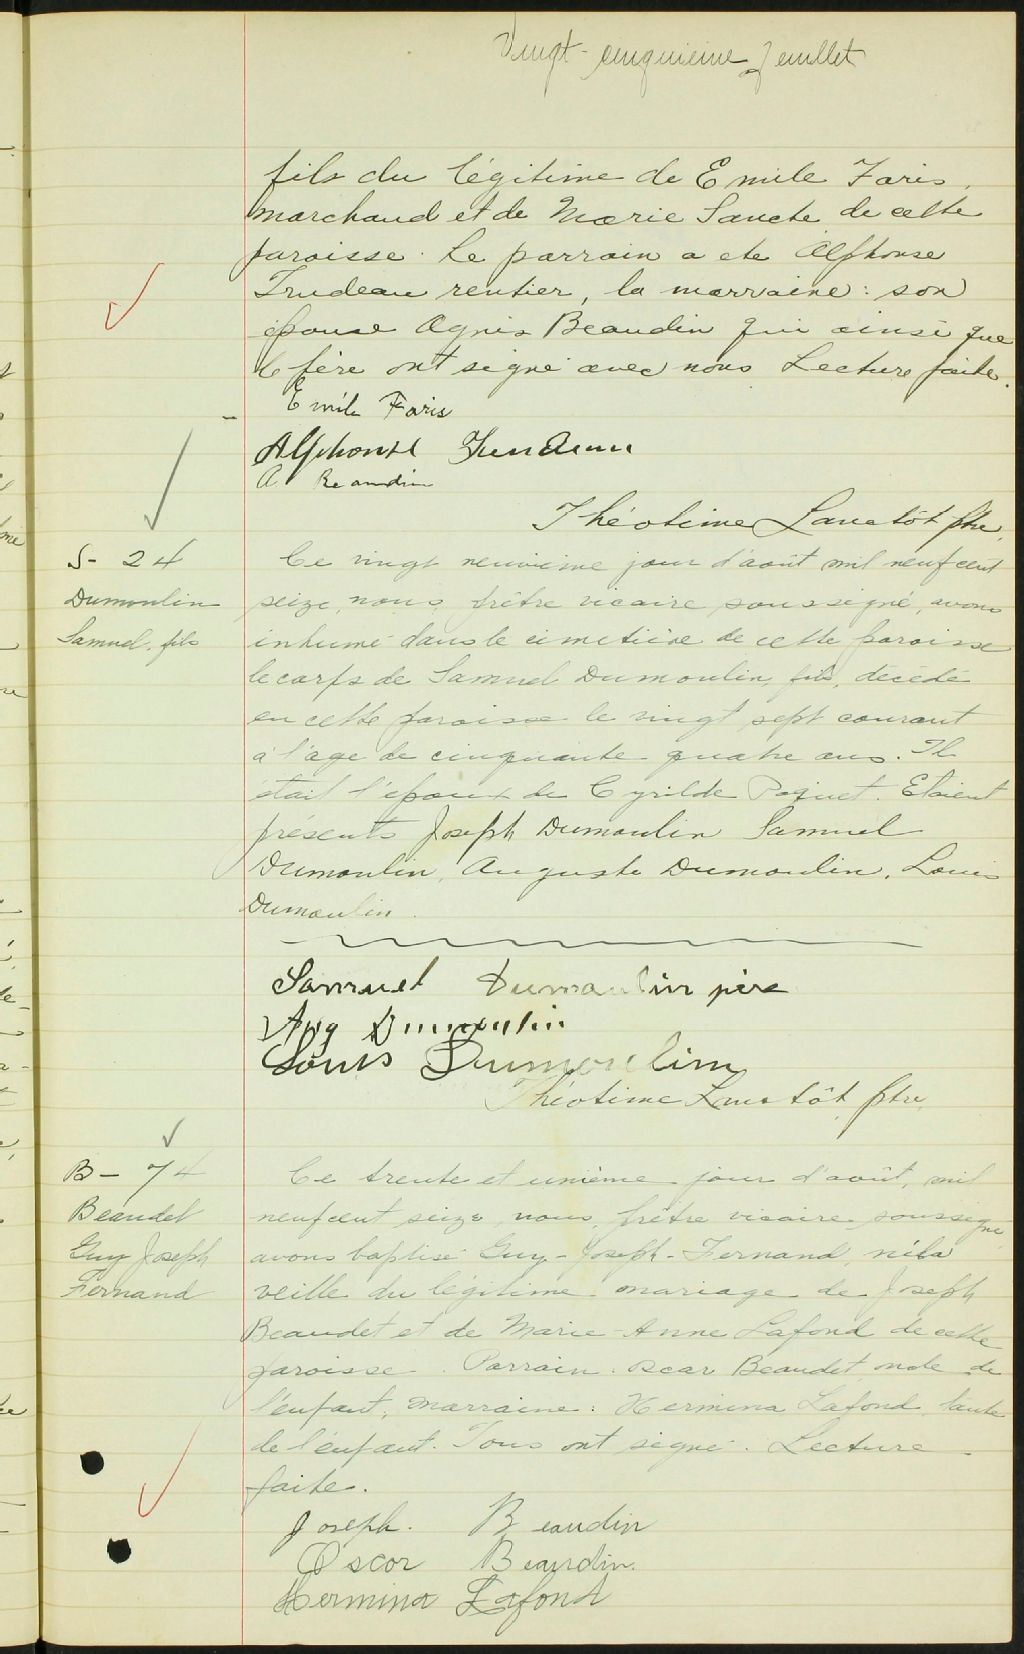 Vingt-cinquième feuillet
fils du légitime de Emile Faris,
marchand et de Marie Saucte de cette
paroisse. Le parrain a ete Alphonse
Trudeau rentier, la marraine: son
épouse Agnis Beaudin qui ainsi que
le père ont signé avec nous Lecture faite.
Emile Faris
Alphonse Trudeau
A. Beaudin
Théotime Lanctôt ptre.
S- 24
Dumoulin
Samuel, fils
Ce vingt neuvieme jour d'août mil neuf cent
seize, nous, prêtre vicaire soussigné, avons
inhumé dans le cimetière de cette paroisse
le corps de Samuel Dumoulin, fils, décédé
en cette paroisse le vingt sept courant
à l'age de cinquante quatre ans. Il
était l'époux de Cyrilde Paquet. Etaient
présents Joseph Dumoulin Samuel
Dumoulin, Auguste Dumoulin, Louis
Dumoulin.
Samuel Dumoulin père
Aug Dumoulin
Louis Dumoulin
Théotime Lanctôt ptre.
B- 74
Beaudet
Guy Joseph
Fernand
Ce trente et unième jour d'août, mil
neuf cent seize, nous, prêtre vicaire soussigné,
avons baptisé Guy-Joseph-Fernand, né la
veille du légitime mariage de Joseph
Beaudet et de Marie-Anne Lafond de cette
paroisse. Parrain: Oscar Beaudet, oncle de
l'enfant; marraine: Hermina Lafond, tante
de l'enfant. Tous ont signé. Lecture
faite.
Joseph. Beaudin
Oscar Beaudin.
Hermina Lafond